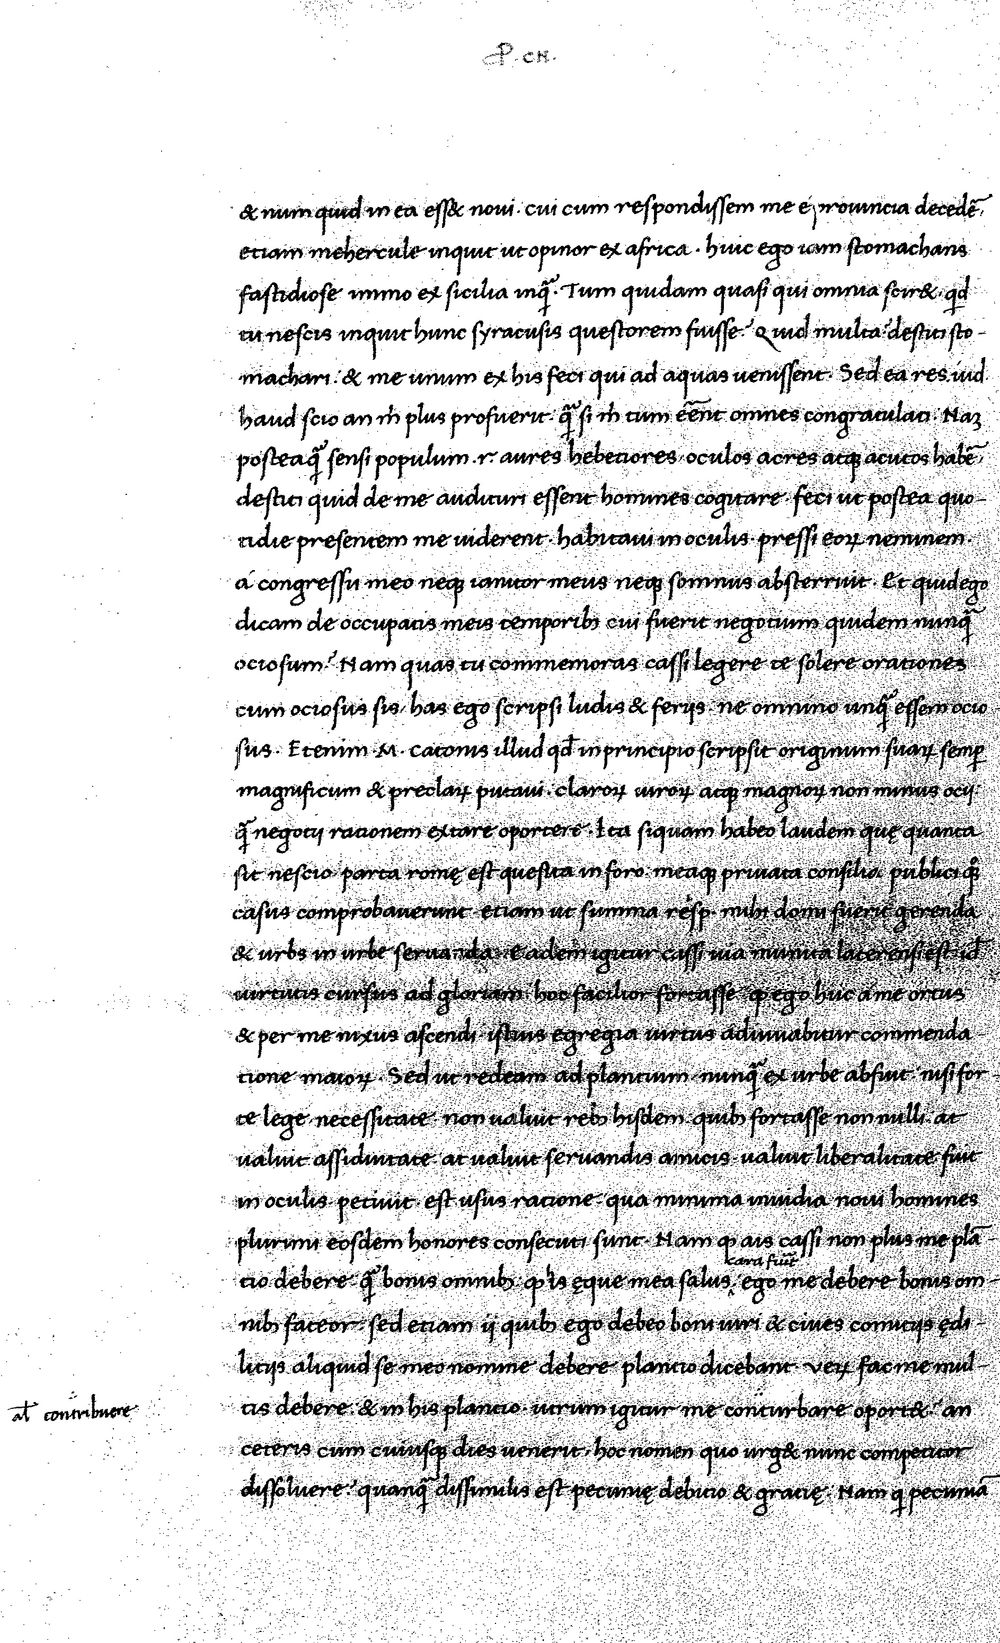 P. CN.
& num quid in ea ess& noui. cui cum respondissem me e prouincia decedē,
etiam mehercule inquit ut opinor ex africa. huic ego iam stomachans
fastidiose immo ex sicilia inq̄. Tum quidam quasi qui omnia scir&. qd̄
tu nescis inquit hunc syracusis questorem fuisse? Quid multa? destiti sto-
machari. & me unum ex his feci qui ad aquas uenissent. Sed ea res iud.
haud scio an m̄ plus profuerit. q̄ si m̄ tum eēnt omnes congratulati. Naʒ
posteaq̄ sensi populum .r. aures hebetiores, oculos acres atqꝫ acutos habē,
destiti quid de me audituri essent homines cogitare. feci ut postea quo-
tidie presentem me uiderent. habitaui in oculis. pressi eoꝝ neminem.
á congressu meo neqꝫ ianitor meus neqꝫ somnus absterruit. Et quid ego
dicam de occupatis meis temporibꝫ cui fuerit negotium quidem nunq̄
ociosum? Nam quas tu commemoras cassi legere te solere orationes
cum ociosus sis, has ego scripsi ludis & ferijs. ne omnino unq̄ essem ocio
sus. Etenim .M. catonis illud qd̄ in principio scripsit originum suaꝝ semꝑ
magnificum & preclaꝝ putaui. claroꝝ uiroꝝ atqꝫ magnoꝝ non minus ocij
q̄ negotij rationem extare oportere. Ita siquam habeo laudem quę quanta
sit nescio parta romę est quesita in foro. meaqꝫ priuata consilia publici qꝫ
casus comprobauerunt. etiam ut summa resp. mihi domi fuerit gerenda
& urbs in urbe seruanda. Eadem igitur cassi uia munita laterensi est. id
uirtutis cursus ad gloriam hoc facilior fortasse. ꝙ ego huc a me ortus
& per me nixus ascendi. istius egregia uirtus adiuuabitur commenda
tione maioꝝ. Sed ut redeam ad plancium. nunq̄ ex urbe abfuit. nisi sor-
te lege necessitate. non ualuit rebꝫ hisdem. quibꝫ fortasse non nulli. at
ualuit assiduitate. at ualuit seruandis amicis. ualuit liberalitate fuit
in oculis. petiuit. est usus ratione. qua minima inuidia noui homines
plurimi eosdem honores consecuti sunt. Nam ꝙ ais cassi non plus me plā
cara fuit̄
cio debere. q̄ bonis omnibꝫ. ꝙ ijs ęque mea salus, ego me debere bonis om-
nibꝫ fateor. sed etiam ij quibꝫ ego debeo boni uiri & ciues comitijs ędi-
litijs aliquid se meo nomine debere plancio dicebant. Veꝝ fac me mul-
tis debere. & in his plancio. utrum igitur me conturbare oport&? an
al̄ contribuere
ceteris cum cuiusqꝫ dies uenerit. hoc nomen quo urg& nunc competitor
dissoluere? quanq̄ dissimilis est pecunię debitio & gratię. Nam q̄ pecuniā